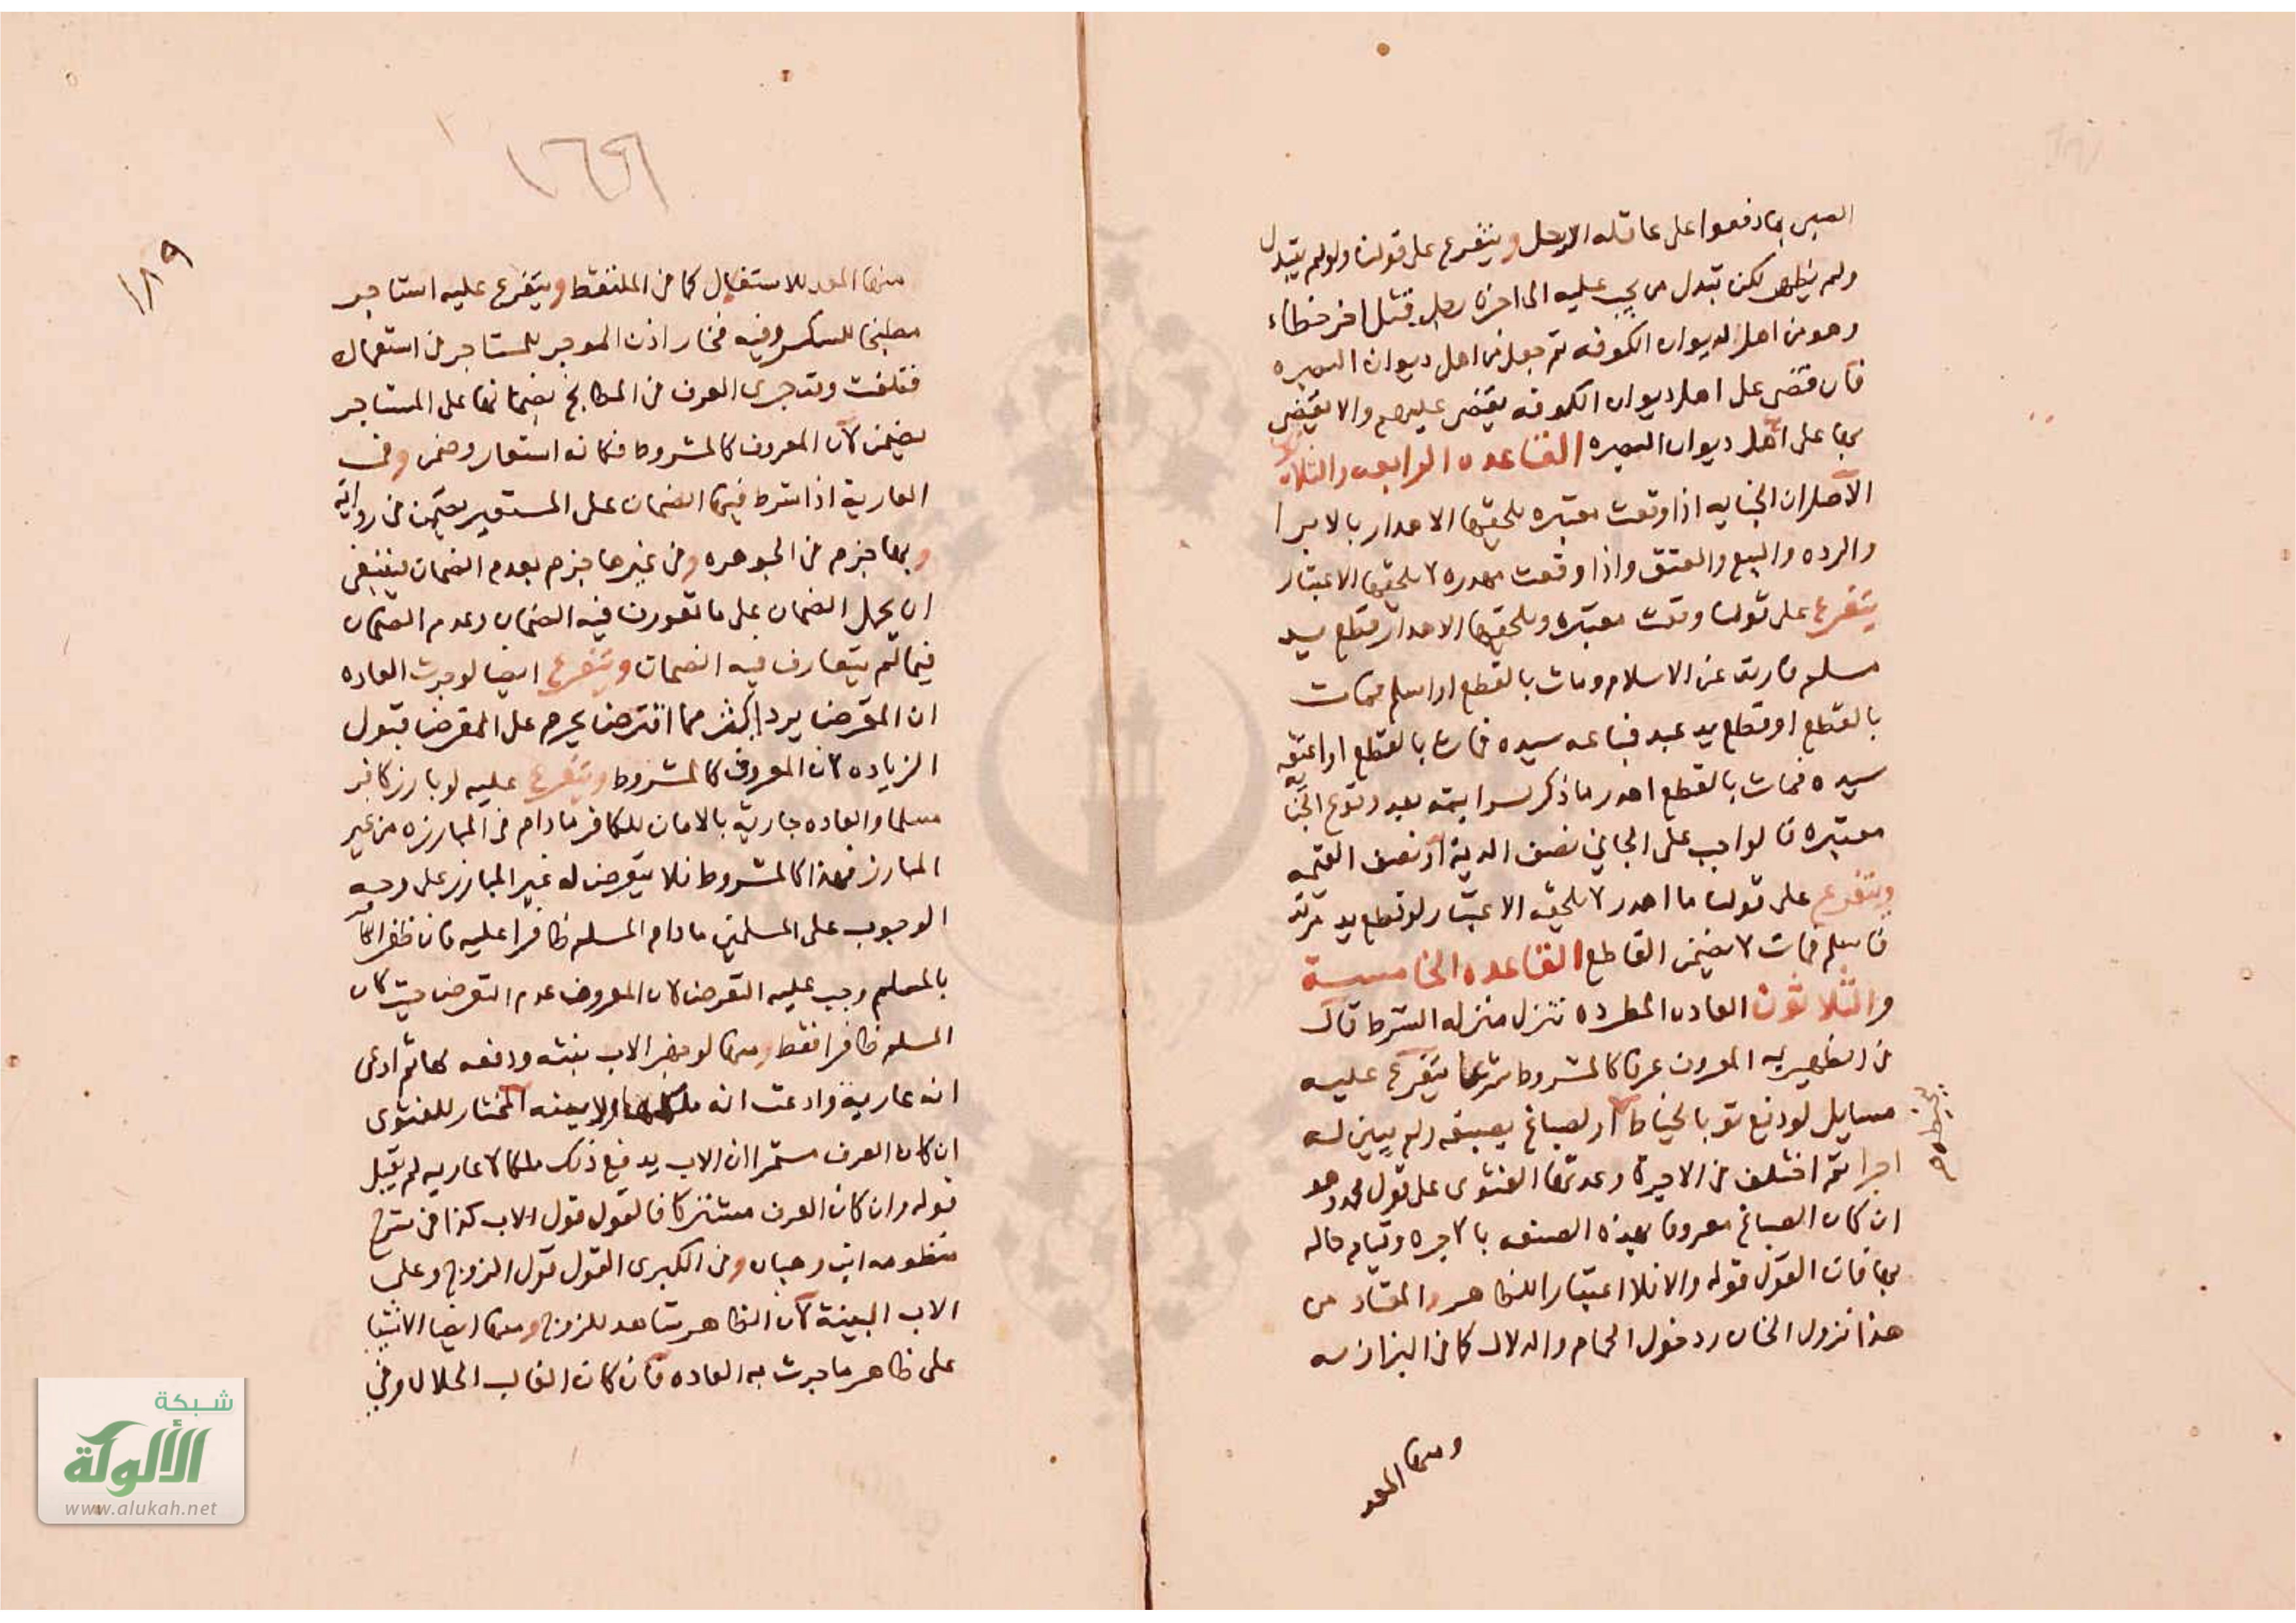 الصبى بما دفعوا على عاقلة الرجل ويتفرع على قولنا ولو لم يتبدل
ولم يظهر لكن تبدل من يجب عليه الى اخره رجل قتل اخر خطاء
وهو من اهل الديوان الكوفه ثم جعل من اهل ديوان البصره
فان قضى على اهل ديوان الكوفه يقضى عليهم والا يقضى
بها على اهل ديوان البصره القاعده الرابعه والثلاثون
الاصل ان الجنايه اذا وقعت معتبره يلحقها الاهدار بالابرا
والرده والبيع والعتق واذا وقعت مهدره لا يلحقها الاعتبار
يتفرع على قولنا وقعت معتبره ويلحقها الاهدار قطع يد
مسلم فارتد عن الاسلام ومات بالقطع او اسلم فمات
بالقطع او قطع يد عبد فباعه سيده فمات بالقطع او اعتقه
سيده فمات بالقطع اهدر ما ذكر سرايته بعد وقوع الجنايه
معتبره فالواجب على الجاني نصف الدية او نصف القيمه
ويتفرع على قولنا ما اهدر لا يلحقه الاعتبار لو قطع يد مرتد
فاسلم فمات لا يضمن القاطع القاعده الخامسة
والثلاثون العاده المطرده تنزل منزله الشرط قال
في الظهيريه المعروف عرفا كالمشروط شرعا يتفرع عليه
مسايل لو دفع ثوبا لخياط او لصباغ يصبغه ولم يبين له
اجرا ثم اختلف في الاجرة وعدمها الفتوى على قول محمد وهو
ان كان الصباغ معروفا بهذه الصنعه بالاجره وقيام حاله
بها فان القول قوله والا فلا اعتبارا للظاهر والمعتاد من
هذا نزول الخان ودخول الحمام والدلال كما في البزازيه
ومنها المعد
١٨٩
١٦٩
منها المعد للاستغلال كما في الملتقط ويتفرع عليه استاجر
مطبخا للسكر وفيه فخار اذن الموجر للمستاجر في استعماله
فتلفت وقد جرى العرف في المطابخ بضمانها على المستاجر
يضمن لان المعروف كالمشروط فكانه استعار وضمن وفي
العارية اذا شرط فيها الضمان على المستعير يضمن في رواية
وبها جزم في الجوهره وفي غيرها جزم بعدم الضمان فينبغي
ان يحمل الضمان على ما تعورف فيه الضمان وعدم الضمان
فيما لم يتعارف فيه الضمان ويتفرع ايضا لو جرت العاده
ان المقترض يرد اكثر مما اقترض يحرم على المقرض قبول
الزياده لان المعروف كالمشروط ويتفرع عليه لو بارز كافر
مسلما والعاده جارية بالامان للكافر ما دام في المبارزه من غير
المبارز فهذا كالمشروط فلا يتعرض له غير المبارز على وجه
الوجوب على المسلمين ما دام المسلم ظافرا عليه فان ظفر الكافر
بالمسلم وجب عليه التعرض لان المعروف عدم التعرض حيث كان
المسلم ظافرا فقط ومنها لو جهز الاب بنته ودفعه لها ثم ادعى
انه عارية وادعت انه ملكها ولا بينه المختار للفتوى
ان كان العرف مستمرا ان الاب يدفع ذلك ملكا لا عاريه لم يقبل
قوله وان كان العرف مشتركا فالقول قول الاب كذا في شرح
منظومه ابن وهبان وفي الكبرى القول قول الزوج وعلى
الاب البينة لان الظاهر شاهد للزوج ومنها ايضا
على ظاهر ما جرت به العاده فان كان الغالب الحلال وفي
شبكة
الألوكة
www.alukah.net